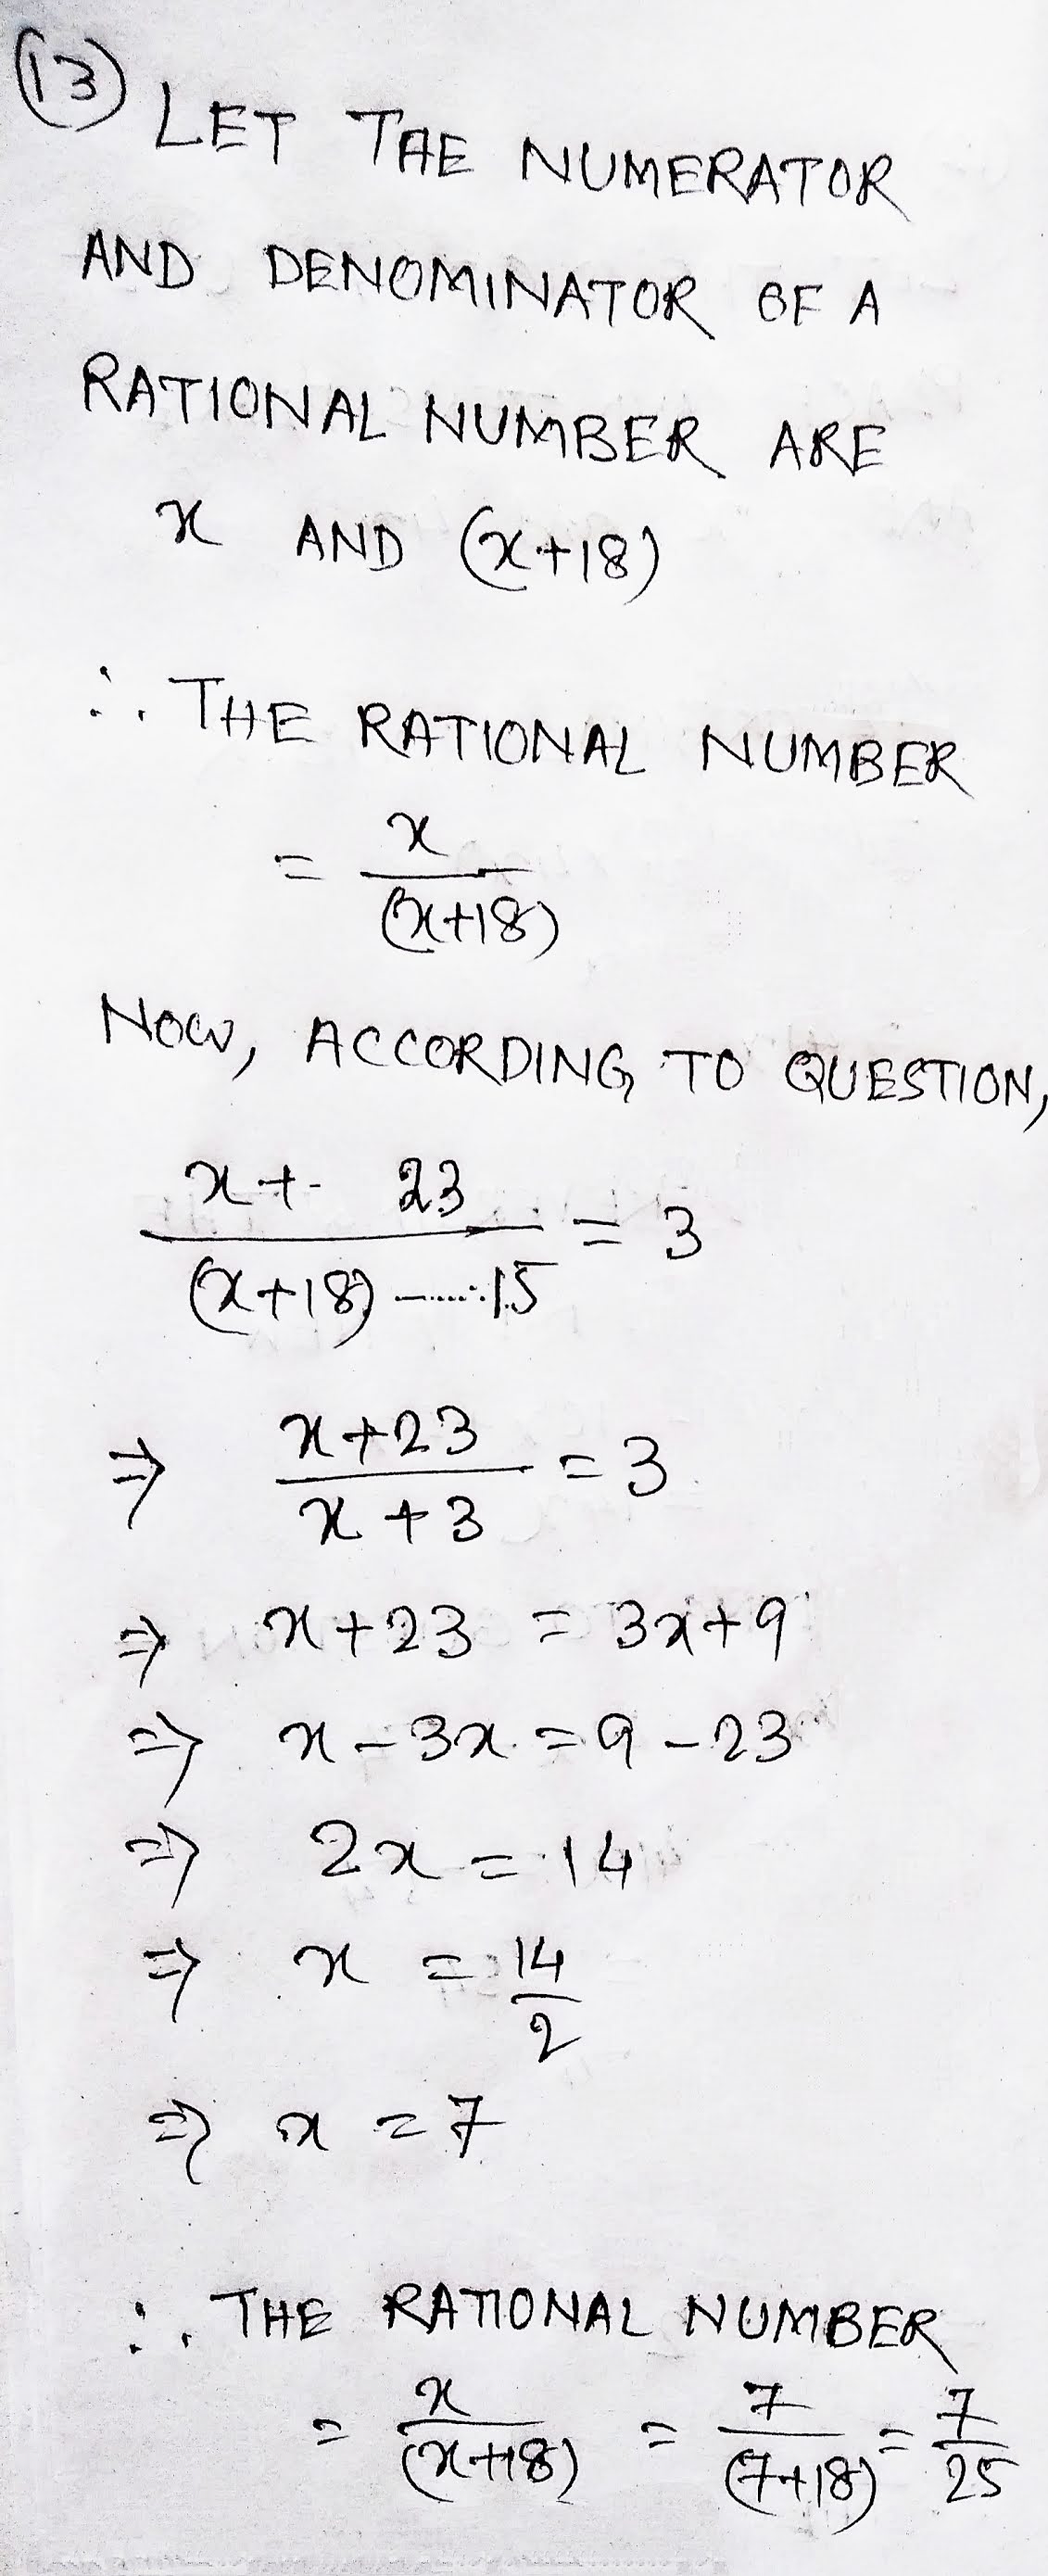 (13) LET THE NUMERATOR
AND DENOMINATOR OF A
RATIONAL NUMBER ARE
x AND (x+18)
∴ THE RATIONAL NUMBER
= x/(x+18)
Now, ACCORDING TO QUESTION,
x+ 23/(x+18) -......15 = 3
⇒ x+23/x+3 = 3
⇒ x+23 = 3x+9
⇒ x-3x = 9-23
⇒ 2x = 14
⇒ x = 14/2
⇒ x = 7
∴ THE RATIONAL NUMBER
= x/(x+18) = 7/(7+18) = 7/25